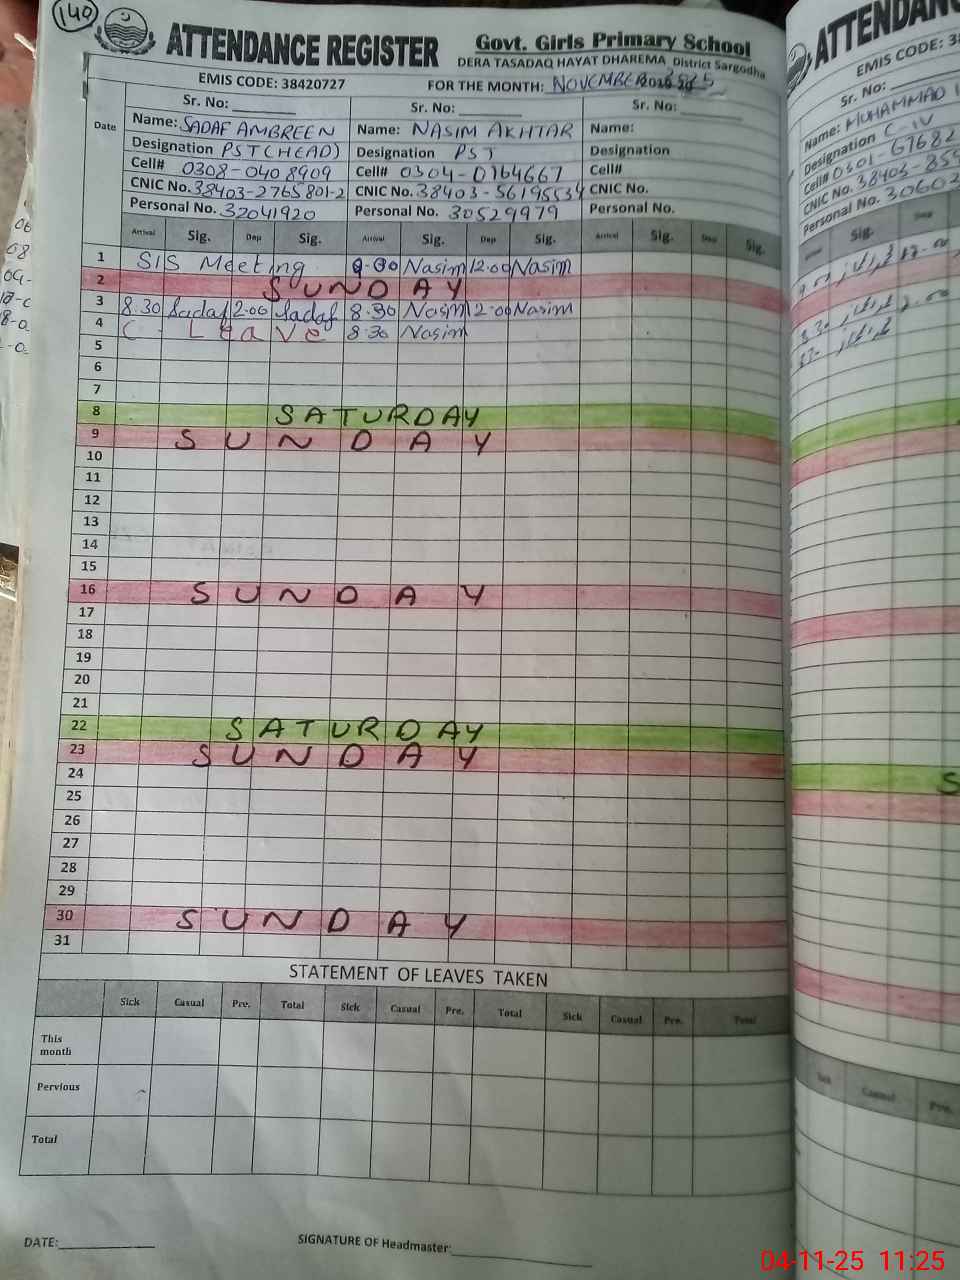 140
ATTENDANCE REGISTER
Govt. Girls Primary School
DERA TASADAQ HAYAT DHAREMA District Sargodha
EMIS CODE: 38420727
FOR THE MONTH: NOVEMBER
Date
Sr. No: Sr. No: Sr. No:
Name: SADAF AMBREEN Name: NASIM AKHTAR Name:
Designation PST (HEAD) Designation PST Designation
Cell# 0308-0408909 Cell# 0304-0164667 Cell#
CNIC No. 38403-2765801-2 CNIC No. 38403-56195534 CNIC No.
Personal No. 32041920 Personal No. 30529979 Personal No.
Arrival Sig. Dep Sig. Arrival Sig. Dep Sig. Arrival Sig. Dep Sig.
1 SIS Meeting 9.00 Nasim 12.00 Nasim
2 SUNDAY
3 8.30 Sadaf 2.00 Sadaf 8.30 Nasim 2.00 Nasim
4 C. Leave 8.30 Nasim
5
6
7
8 SATURDAY
9 SUNDAY
10
11
12
13
14
15
16 SUNDAY
17
18
19
20
21
22 SATURDAY
23 SUNDAY
24
25
26
27
28
29
30 SUNDAY
31
STATEMENT OF LEAVES TAKEN
Sick Casual Pre. Total Sick Casual Pre. Total Sick Casual Pre. Total
This month
Pervious
Total
DATE:
SIGNATURE OF Headmaster:
ATTENDAN
EMIS CODE: 3
Sr. No:
Name: MUHAMMAD
Designation C IV
Cell# 0301-67682
CNIC No. 38403-85
Personal No. 30602
Sig.
S
Casual Pre.
04-11-25 11:25